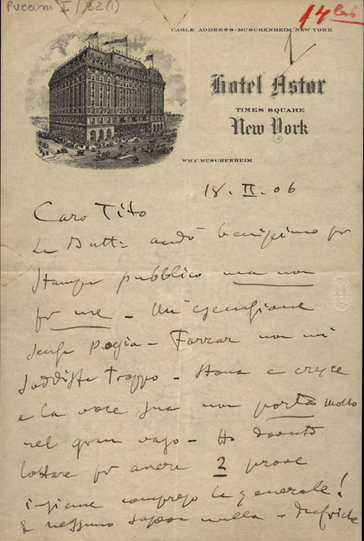 Puccini I/32(1)
14 
CABLE ADDRESS-MUSCHENHEIM, NEW YORK
Hotel Astor
TIMES SQUARE
New York
WM.C.MUSCHENHEIM
18. II. 06
Caro Tito
La Butt: andò benissimo per
stampa pubblico ma non
per me – Un'esecuzione
senza poesia – Farrar non mi
soddisfa troppo – stona e cresce
e la voce sua non porta molto
nel gran vaso – Ho dovuto
lottare per avere 2 prove
insieme compreso la generale!
E nessuno sapeva nulla – Dufriche